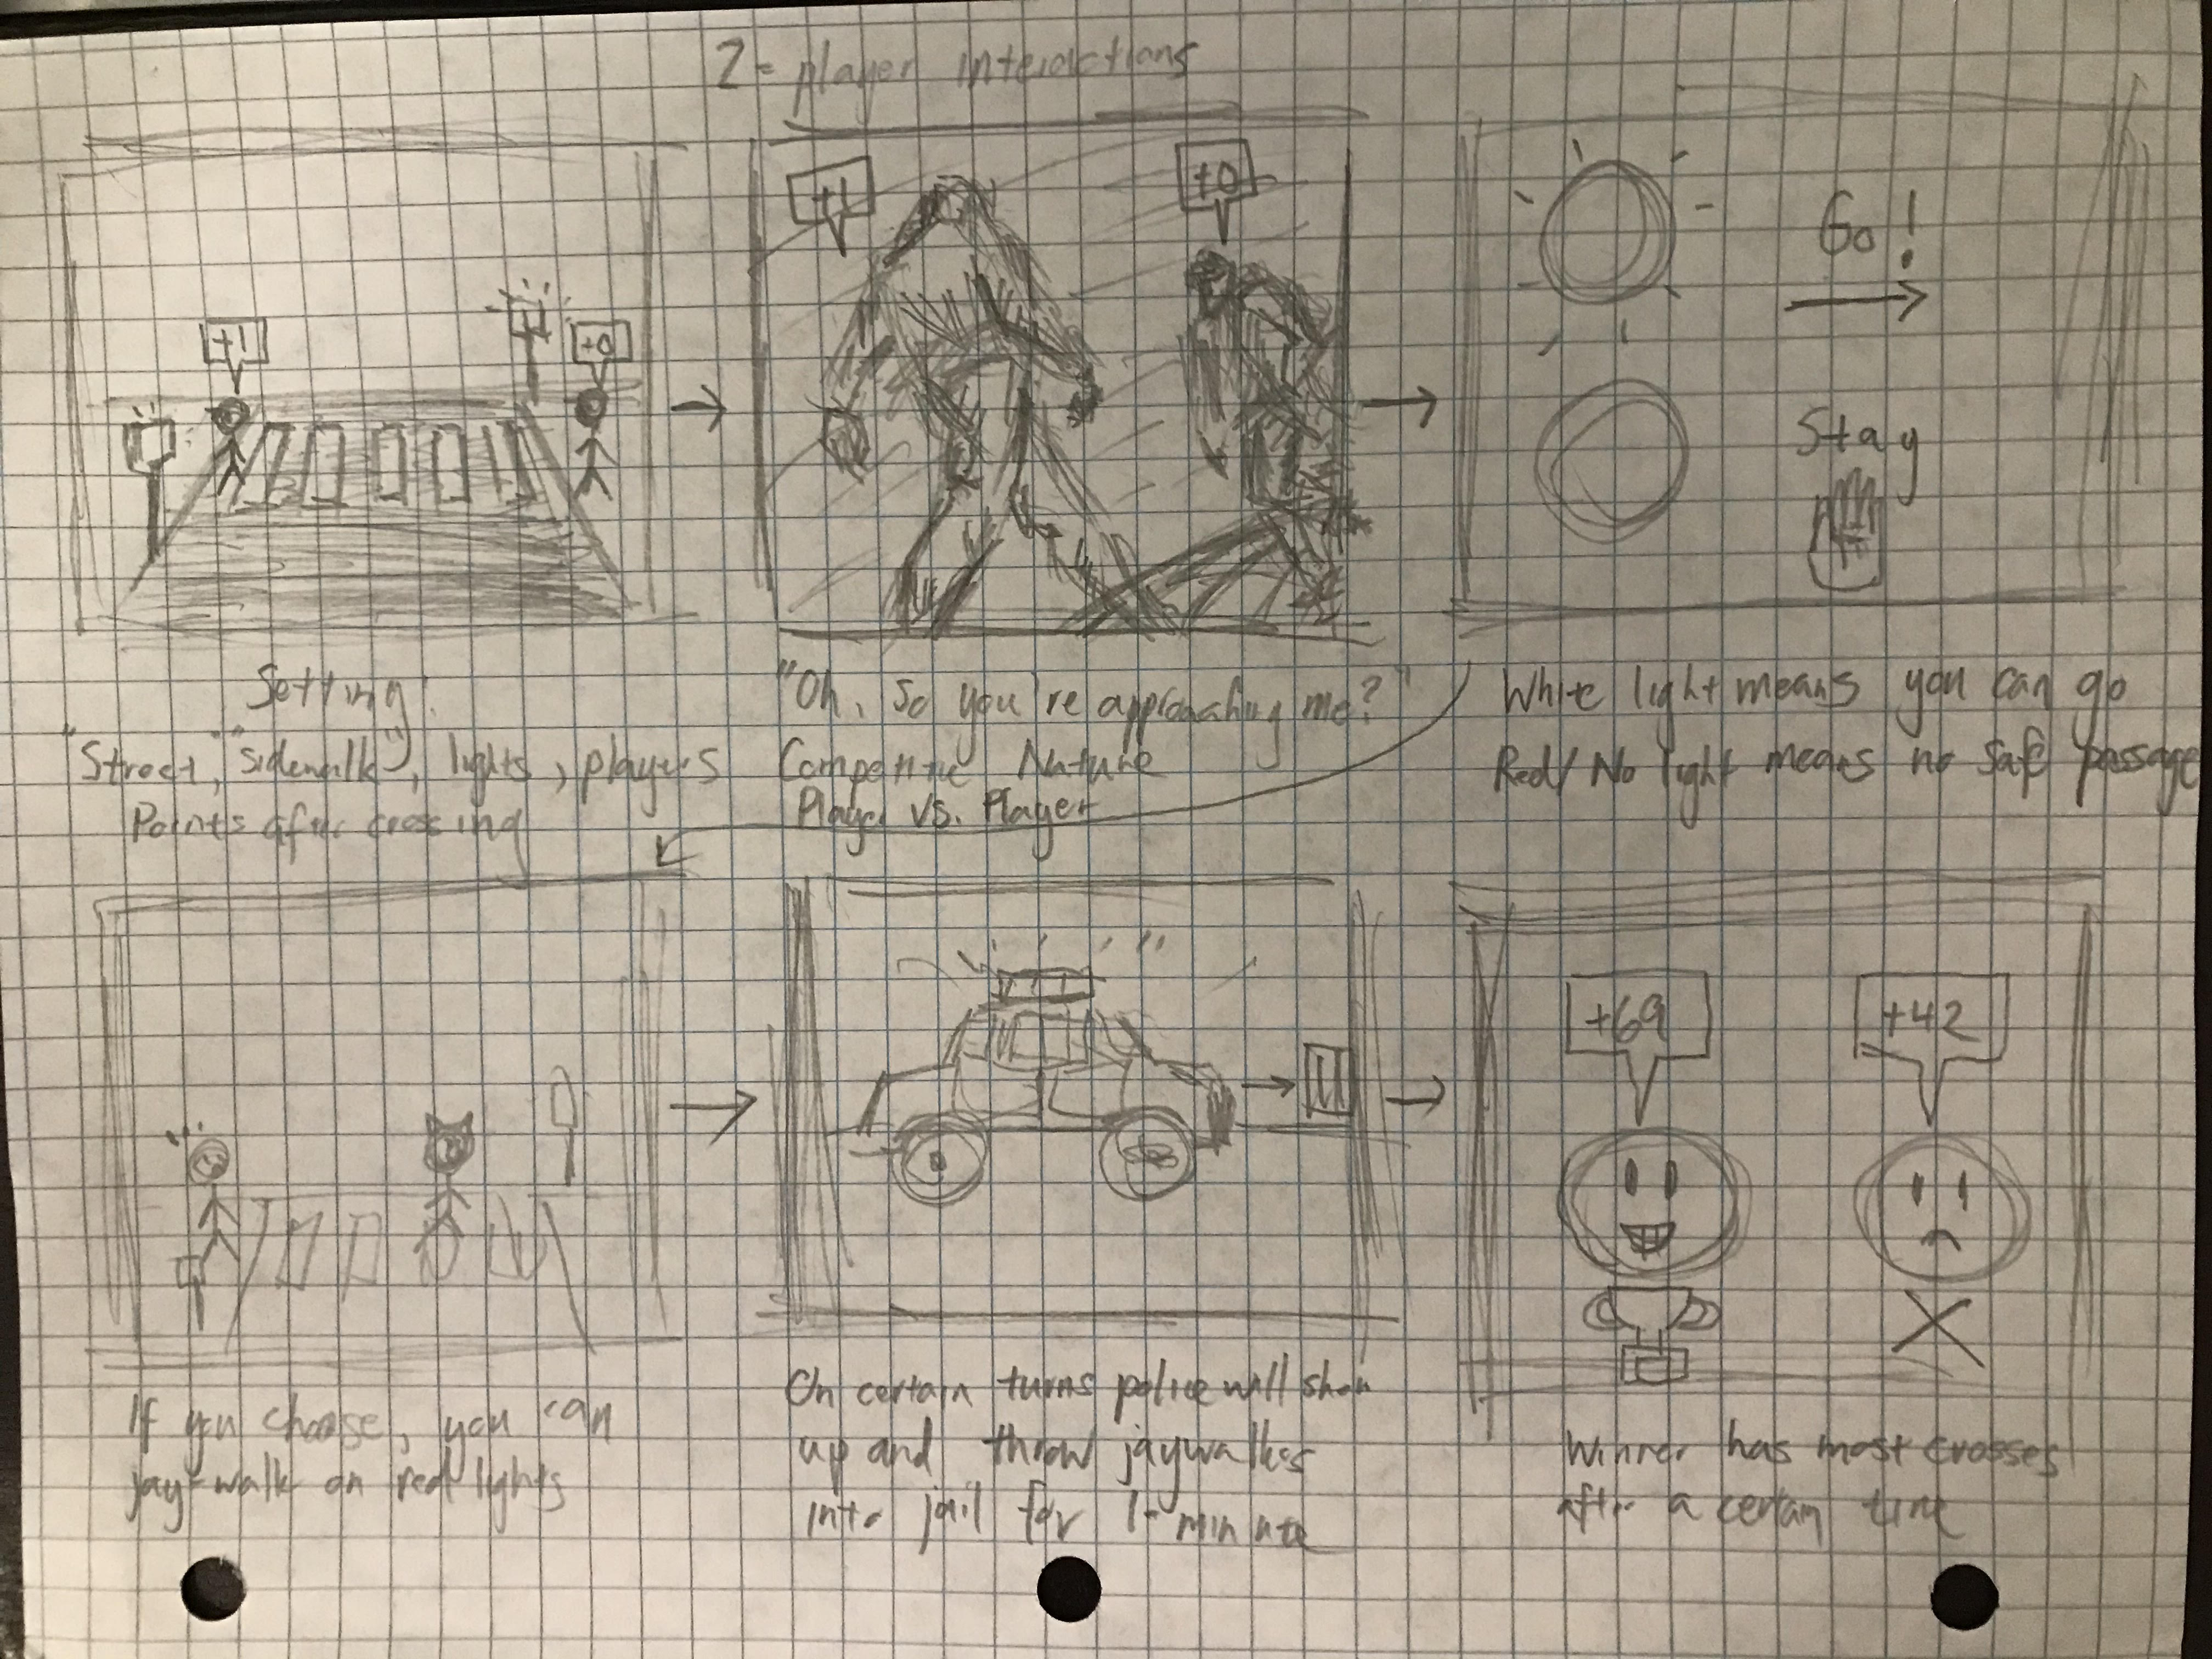 2-player interactions
+1
+0
+1
+0
Go!
Stay
Setting:
"Street," "sidewalk", lights, players
Points after crossing
"Oh, so you're approaching me?"
Competitive Nature
Player vs. Player
White light means you can go
Red/No light means no safe passage
+69
+42
If you choose, you can
jay-walk on red lights
On certain turns police will show
up and throw jaywalkers
into jail for 1-minute
Winner has most crosses
after a certain time